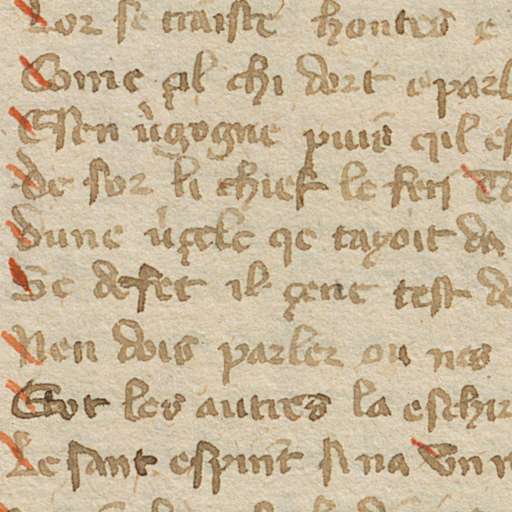 Lor se traistẽ hontes e
Come q̃l chi dort e parl
Esen ũgogne puis qil es
de sor li chief le feri
Dune ũgele qe tayoit da
Se defet il gent test de
Nen dois parler ou nes
Tot les autres la eschir
Le sant espirit si na Un